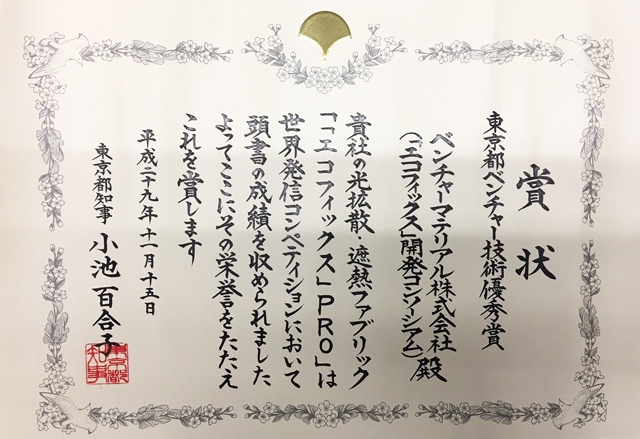 賞状
東京都ベンチャー技術優秀賞
ベンチャーマテリアル株式会社
(「エコフィックス」開発コンソーシアム) 殿
貴社の光拡散 遮熱ファブリック
「「エコフィックス」PRO」は
世界発信コンペティションにおいて
頭書の成績を収められました
よってここにその栄誉をたたえ
これを賞します
平成二十九年十一月十五日
東京都知事 小池百合子
東京都
知事